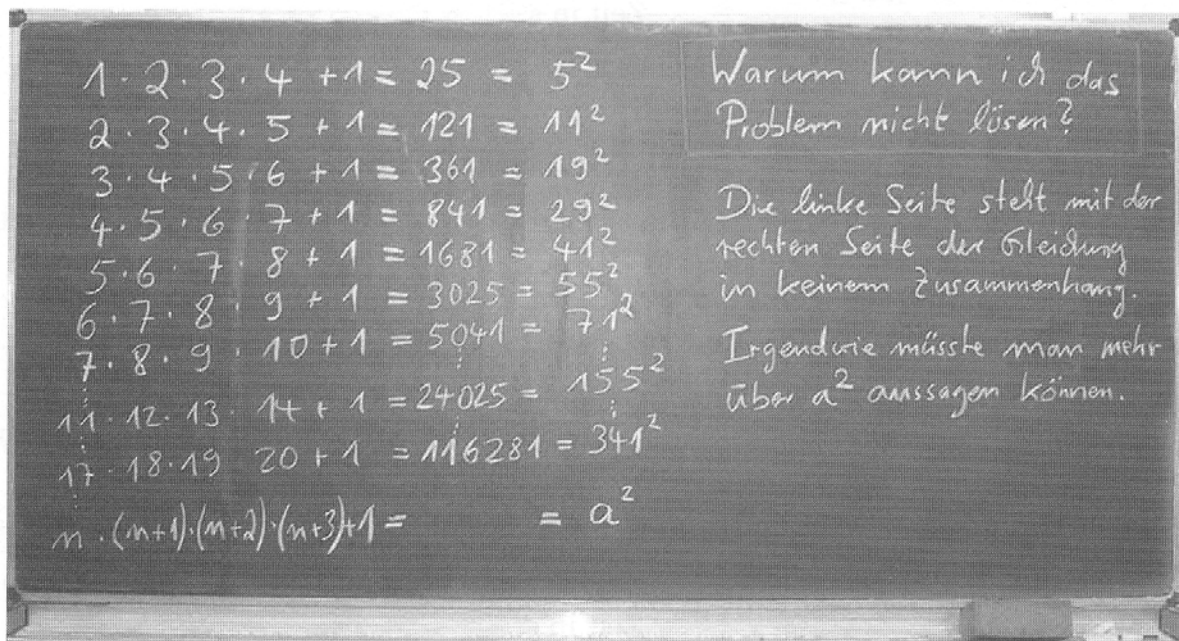 1 · 2 · 3 · 4 + 1 = 25 = 5²
2 · 3 · 4 · 5 + 1 = 121 = 11²
3 · 4 · 5 · 6 + 1 = 361 = 19²
4 · 5 · 6 · 7 + 1 = 841 = 29²
5 · 6 · 7 · 8 + 1 = 1681 = 41²
6 · 7 · 8 · 9 + 1 = 3025 = 55²
7 · 8 · 9 · 10 + 1 = 5041 = 71²
11 · 12 · 13 · 14 + 1 = 24025 = 155²
17 · 18 · 19 20 + 1 = 116281 = 341²
n · (n+1) · (n+2) · (n+3) + 1 = = a²
Warum kann ich das
Problem nicht lösen?
Die linke Seite steht mit der
rechten Seite der Gleichung
in keinem Zusammenhang.
Irgendwie müsste man mehr
über a² aussagen können.